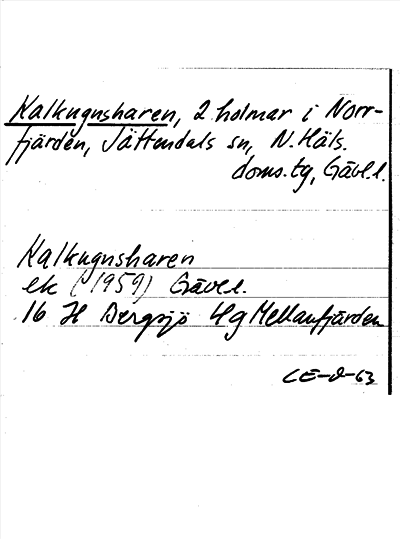 Kalkugnsharen, 2 holmar i Norr-
fjärden, Jättendals sn, N. Häls.
doms.tg, Gävl.l.
Kalkugnsharen
ek (1959) Gävl.l.
16 H Bergsjö 4g Mellanfjärden
CE-J-63